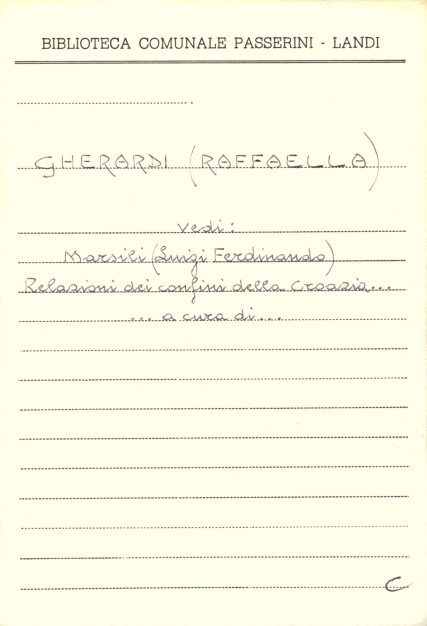 BIBLIOTECA COMUNALE PASSERINI - LANDI
GHERARDI (RAFFAELLA)
vedi:
Marsili (Luigi Ferdinando)
Relazioni dei confini della Croazia...
... a cura di...
C